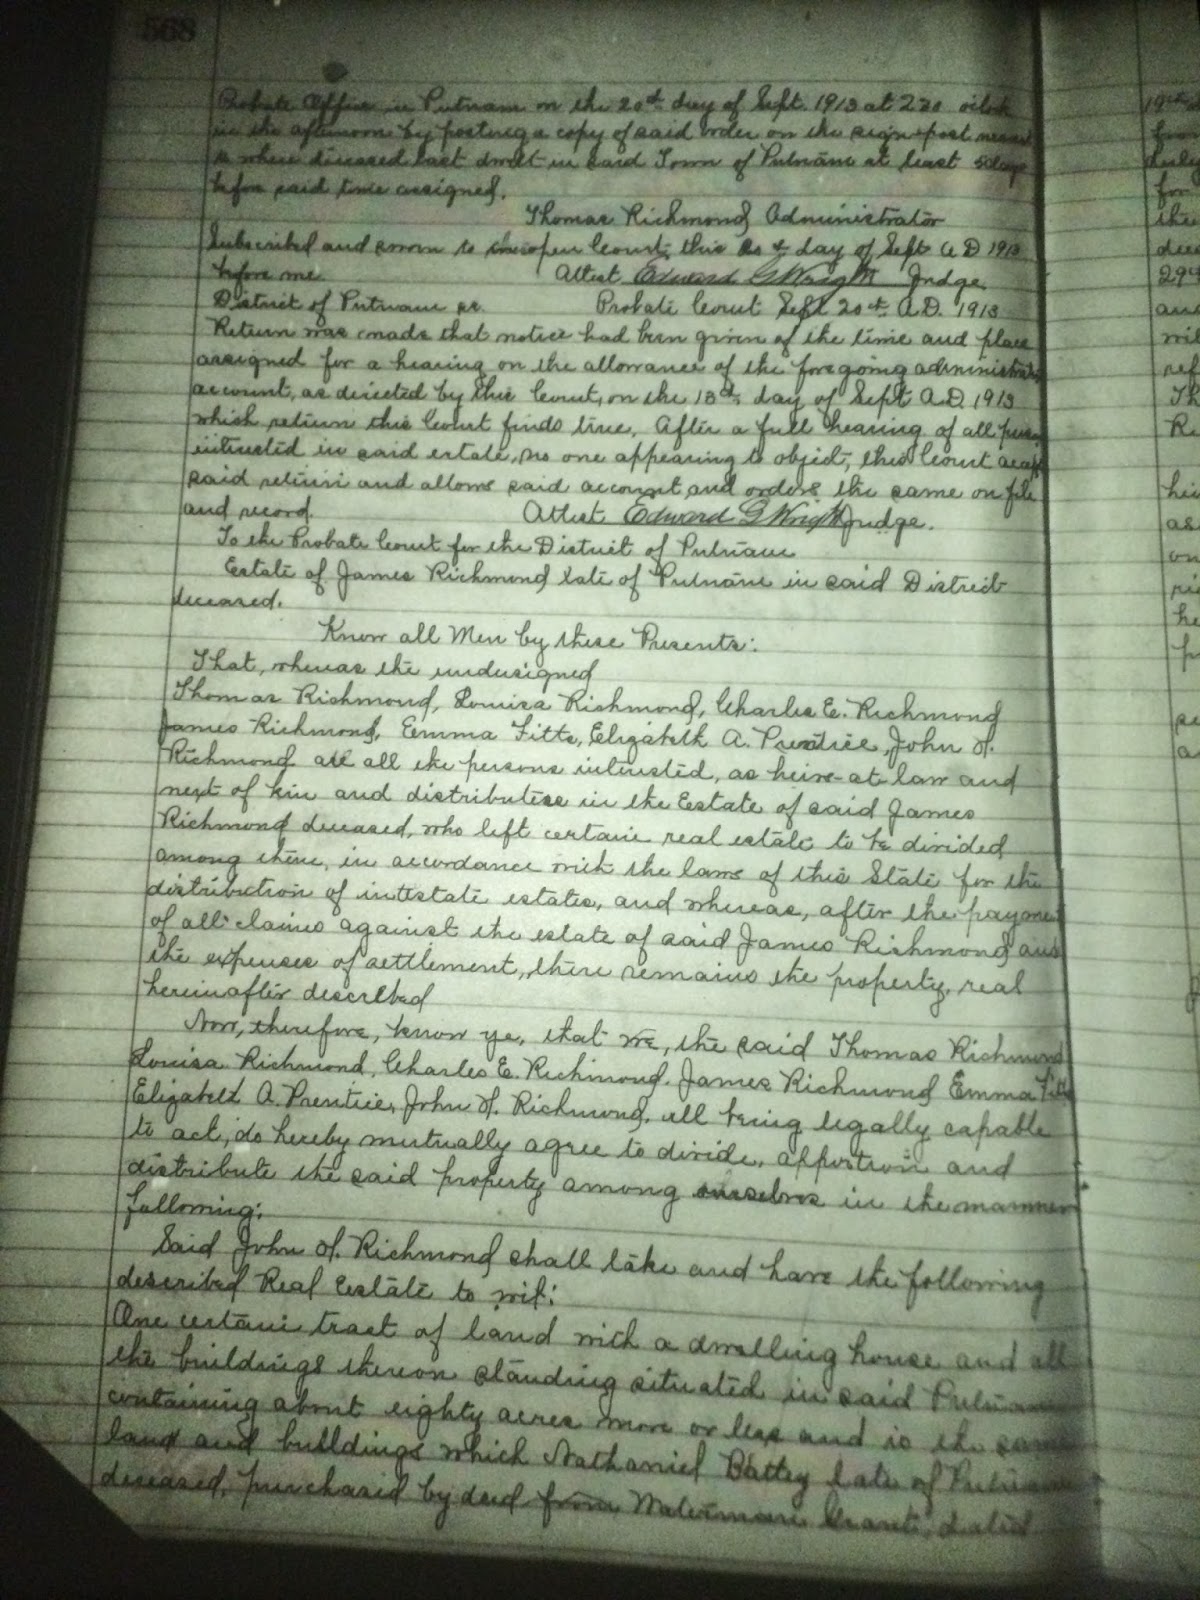 568
Probate Office in Putnam on the 20th day of Sept. 1913 at 2.30 oclock
in the afternoon by posting a copy of said order on the sign-post nearest
to where diseased last dwelt in said Town of Putnam at least 5 days
before said time assigned.
Thomas Richmond Administrator
Subscribed and sworn to in open Court, this 20th day of Sept A D 1913
before me. Attest Edward G Wright Judge
District of Putnam ss. Probate Court Sept 20th A.D. 1913
Return was made that notice had been given of the time and place
assigned for a hearing on the allowance of the foregoing administration
account, as directed by this Court, on the 13th day of Sept A.D. 1913
which return this Court finds true. After a full hearing of all persons
interested in said estate, no one appearing to object, this Court
said return and allows said account and orders the same on file
and record. Attest Edward G Wright Judge.
To the Probate Court for the District of Putnam
Estate of James Richmond late of Putnam in said District
deceased.
Know all Men by these Presents:
That, whereas the undersigned
Thomas Richmond, Louisa Richmond, Charles E. Richmond
James Richmond, Emma Fitts, Elizabeth A. Prentice, John H.
Richmond are all the persons interested, as heirs-at law and
next of kin and distributees in the Estate of said James
Richmond deceased, who left certain real estate to be divided
among them, in accordance with the laws of this State for the
distribution of intestate estates, and whereas, after the payment
of all claims against the estate of said James Richmond and
the expenses of settlement, there remains the property, real
hereinafter described
Now, therefore, know ye, that we, the said Thomas Richmond
Louisa Richmond, Charles E. Richmond, James Richmond Emma Fitts
Elizabeth A. Prentice, John H. Richmond, all being legally capable
to act, do hereby mutually agree to divide, apportion and
distribute the said property among ourselves in the manner
following:
Said John H. Richmond shall take and have the following
described Real Estate to wit:
One certain tract of land with a dwelling house and all
the buildings thereon standing situated in said Putnam
containing about eighty acres more or less and is the same
land and buildings which Nathaniel Battey late of Putnam
deceased, purchased by deed from Waterman Grant, dated